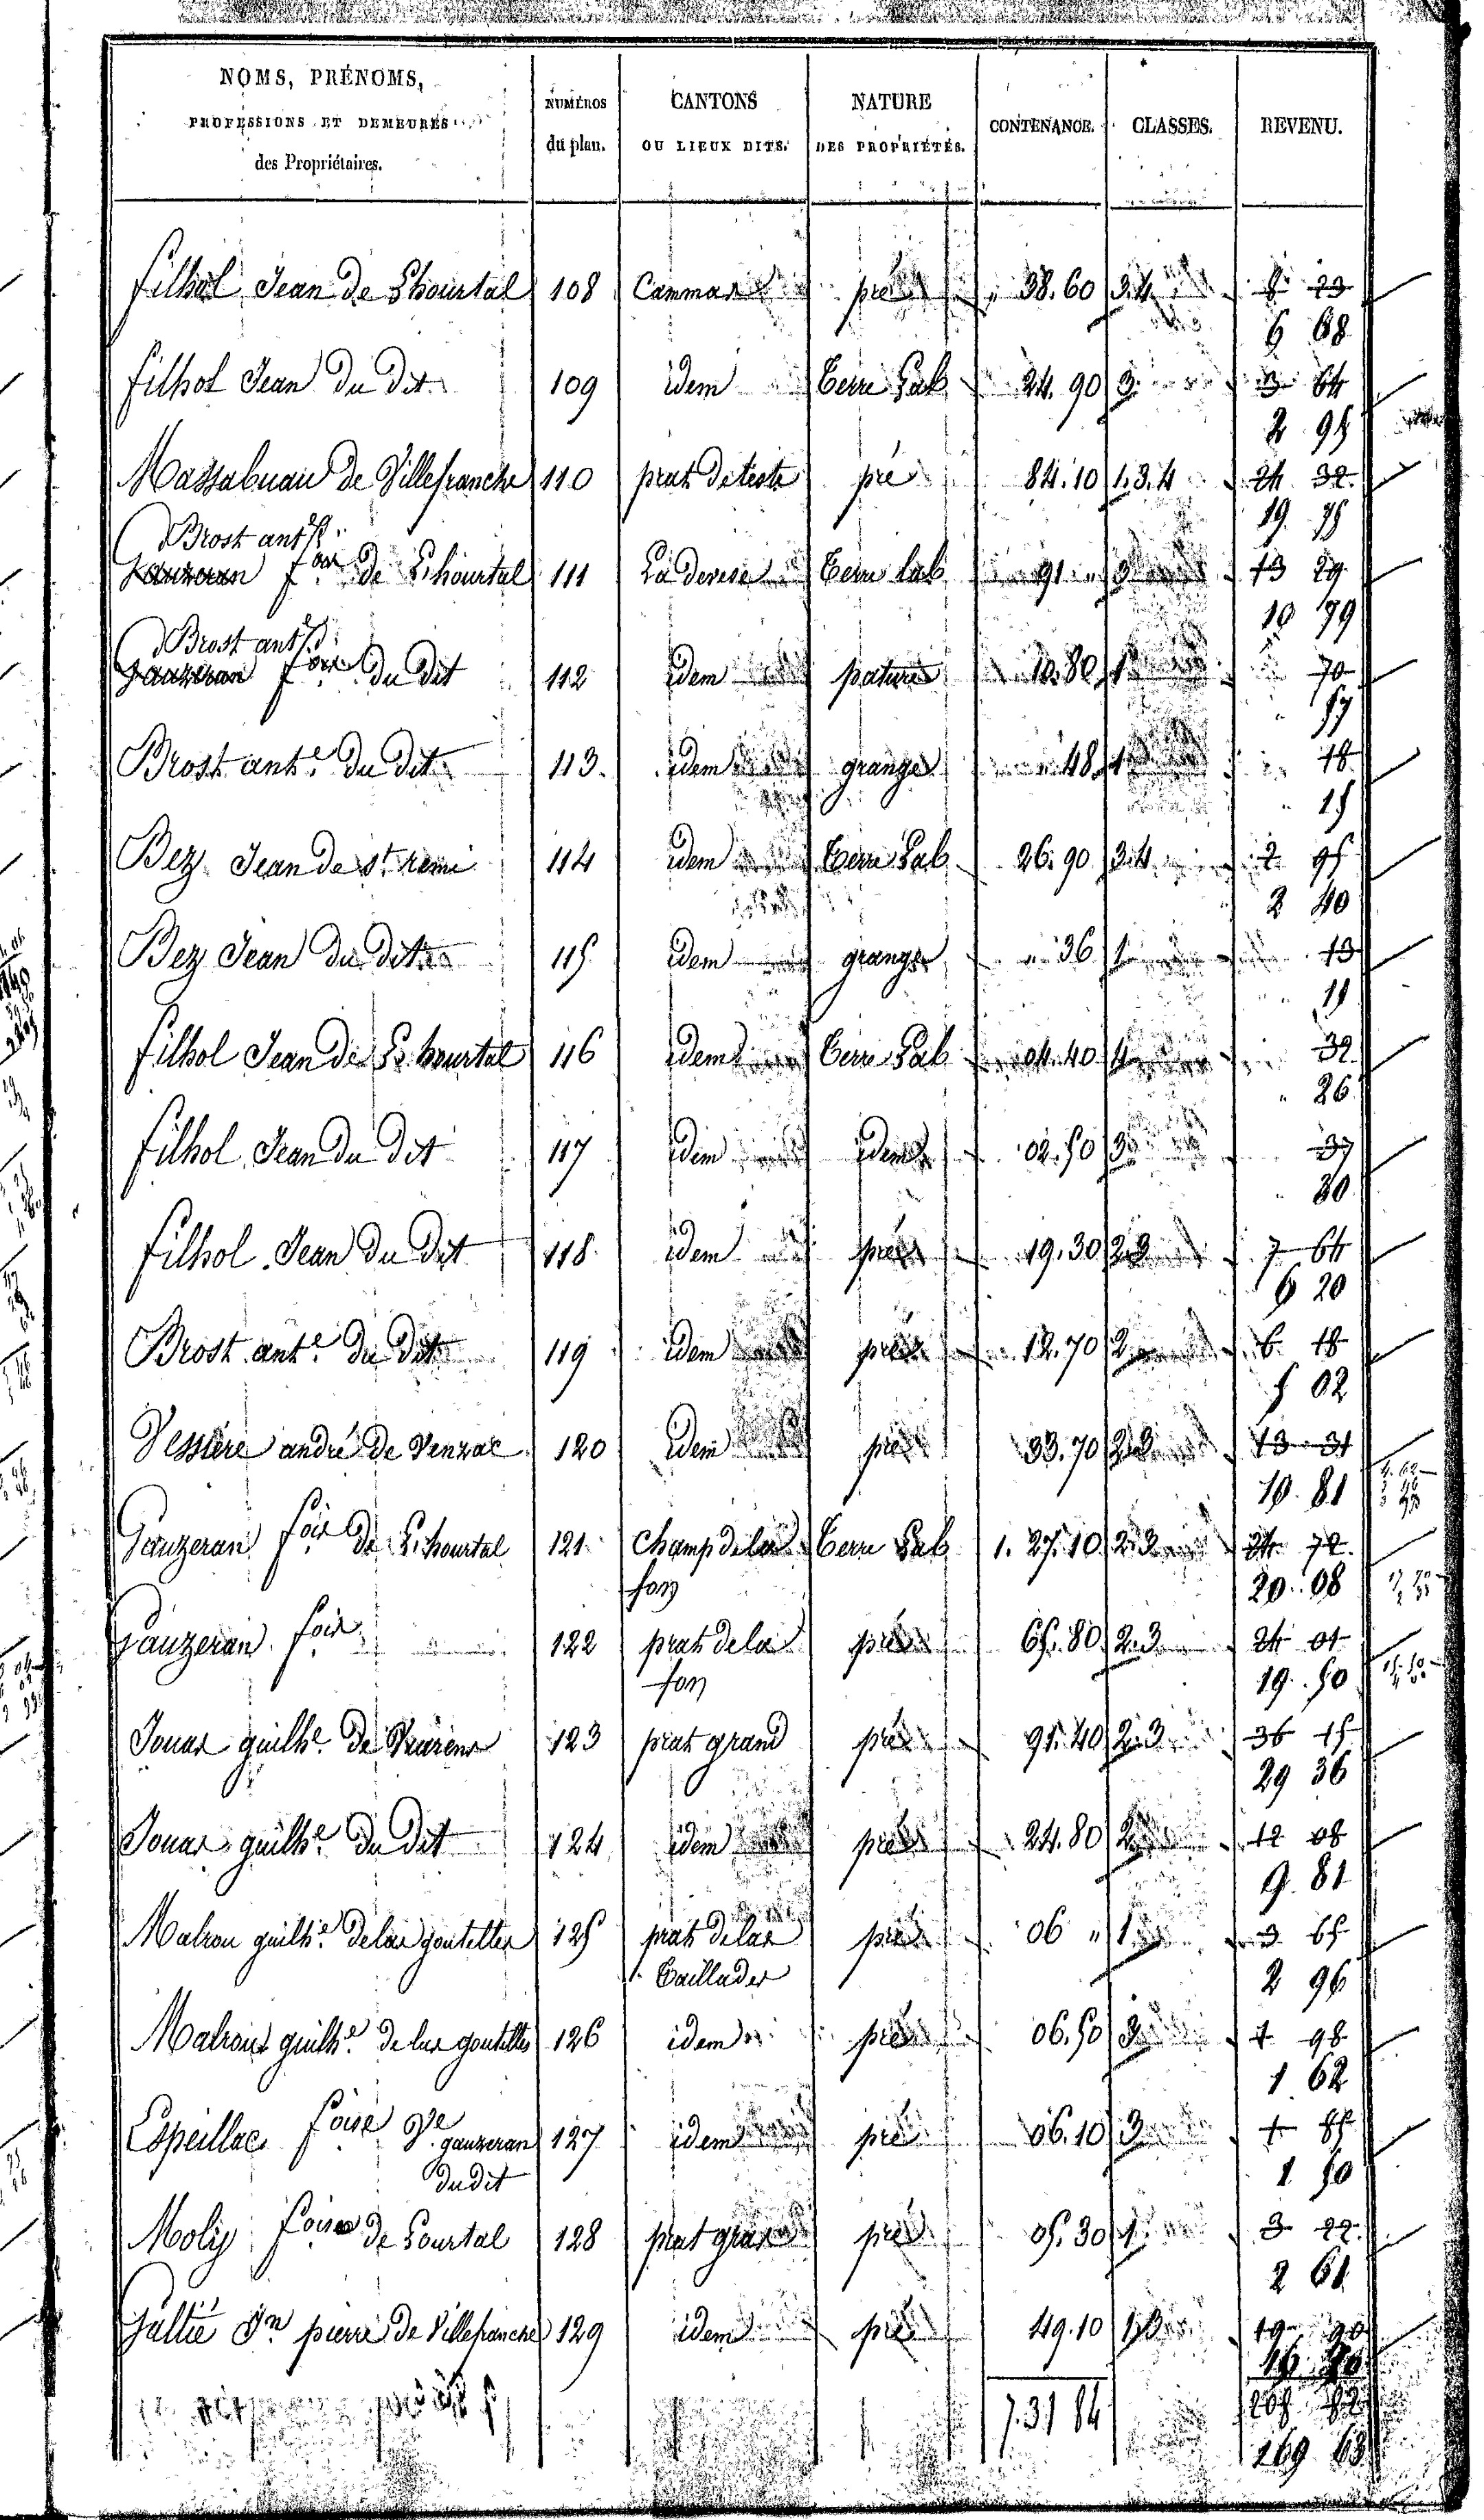 NOMS, PRÉNOMS,
PROFESSIONS ET DEMEURES
des Propriétaires.
NUMÉROS
du plan.
CANTONS
OU LIEUX DITS.
NATURE
DES PROPRIÉTÉS.
CONTENANCE.
CLASSES.
REVENU.
filhol Jean de Lhourtal 108 Cammas pré 38.60 3.4 8 23
6 68
filhol Jean du dit 109 idem terre lab 24.90 3 3 64
2 95
Massabuau de Villefranche 110 prat de teste pré 84.10 1.3.4 24 32
19 75
Brost ant.e
Gauzeran f.ois de Lhourtal 111 La devese terre lab 91 " 3 13 29
10 79
Brost ant.e
Gauzeran f.ois du dit 112 idem pature 10.80 1 70
" 57
Brost ant.e du dit 113 idem grange 48 1 18
" 15
Bez Jean de st. remi 114 idem terre lab 26.90 3.4 2 95
2 40
Bez Jean du dit 115 idem grange 36 1 13
" 11
filhol Jean de Lhourtal 116 idem terre lab 04.40 4 32
" 26
filhol Jean du dit 117 idem idem 02.50 3 37
" 30
filhol Jean du dit 118 idem pré 19.30 2.3 7 64
6 20
Brost ant.e du dit 119 idem pré 12.70 2 6 18
5 02
Vessiere andré de Venzac 120 idem pré 33.70 2.3 13 31
10 81
Gauzeran f.ois de Lhourtal 121 Champ de la terre lab 1.27.10 2.3 24 72
fon
20 08
Gauzeran f.ois 122 prat de la pré 65.80 2.3 24 01
fon
19 50
Jouas guilhe. de 123 prat grand pré 95.40 2.3 36 15
29 36
Jouas guilhe. du dit 124 idem pré 24.80 2 12 08
9 81
Malrou guilhe. de las goutelles 125 prat de las pré 06 " 1 3 65
Taillades
2 96
Malrou guilhe. de las goutelles 126 idem pré 06.50 3 1 98
1 62
Espeillac f.oise Ve
gauzeran 127 idem pré 06.10 3 1 85
du dit
1 50
Moly f.oise de Lourtal 128 prat gras pré 05.30 1 3 22
2 61
Galtié Jn pierre de Villefranche 129 idem pré 49.10 1.3 19 90
16
7.31 84
169 63